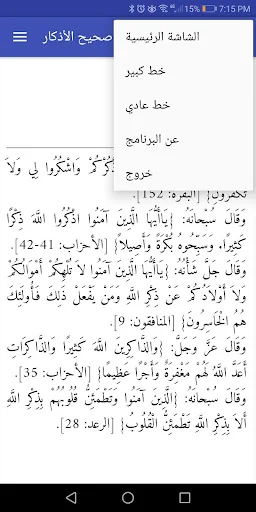 15% 7:15 PM
صحيح الأذكار
الشاشة الرئيسية
خط كبير
خط عادي
عن البرنامج
خروج
ذْكُرْكُمْ وَاشْكُرُوا لِي وَلاَ
تَكْفُرُونِ} [البقرة: 152].
وَقَالَ سُبْحَانَهُ: {يَاأَيُّهَا الَّذِينَ آمَنُوا اذْكُرُوا اللَّهَ ذِكْرًا
كَثِيرًا. وَسَبِّحُوهُ بُكْرَةً وَأَصِيلاً} [الأحزاب: 41-42].
وَقَالَ جَلَّ شَأْنُهُ: {يَاأَيُّهَا الَّذِينَ آمَنُوا لاَ تُلْهِكُمْ أَمْوَالُكُمْ
وَلاَ أَوْلاَدُكُمْ عَنْ ذِكْرِ اللَّهِ وَمَنْ يَفْعَلْ ذَلِكَ فَأُولَئِكَ
هُمُ الْخَاسِرُونَ} [المنافقون: 9].
وَقَالَ عَزَّ وَجَلَّ: {وَالذَّاكِرِينَ اللَّهَ كَثِيرًا وَالذَّاكِرَاتِ
أَعَدَّ اللَّهُ لَهُمْ مَغْفِرَةً وَأَجْرًا عَظِيمًا} [الأحزاب: 35].
وَقَالَ سُبْحَانَهُ: {الَّذِينَ آمَنُوا وَتَطْمَئِنُّ قُلُوبُهُمْ بِذِكْرِ اللَّهِ
أَلاَ بِذِكْرِ اللَّهِ تَطْمَئِنُّ الْقُلُوبُ} [الرعد: 28].